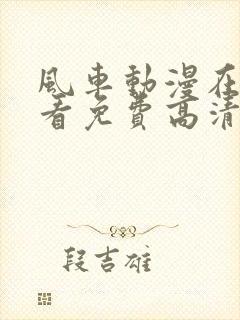 風車動漫在
看免費高清
段吉雄